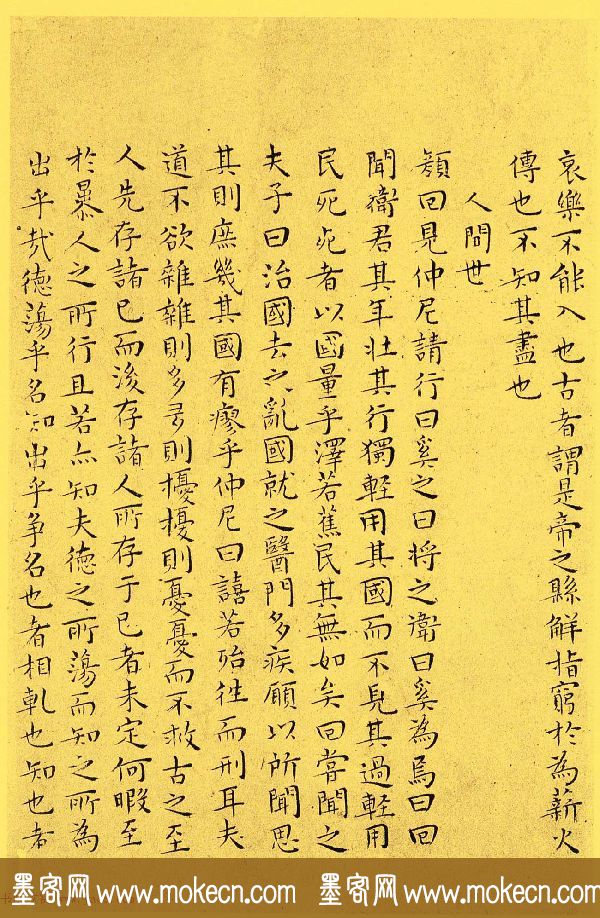 哀樂不能入也古者謂是帝之縣解指窮於為薪火
傳也不知其盡也
人間世
顏回見仲尼請行曰奚之曰将之衛曰奚為焉曰回
聞衛君其年壮其行獨輕用其國而不見其過輕用
民死死者以國量乎澤若蕉民其無如矣回嘗聞之
夫子曰治國去之亂國就之醫門多疾願以所聞思
其則庶幾其國有瘳乎仲尼曰譆若殆往而刑耳夫
道不欲雜雜則多多則擾擾則憂憂而不救古之至
人先存諸己而後存諸人所存于己者未定何暇至
於暴人之所行且若亦知夫德之所蕩而知之所為
出乎哉德蕩乎名知出乎争名也者相軋也知也者
墨客网 www.mokecn.com 墨客网 www.mokecn.com